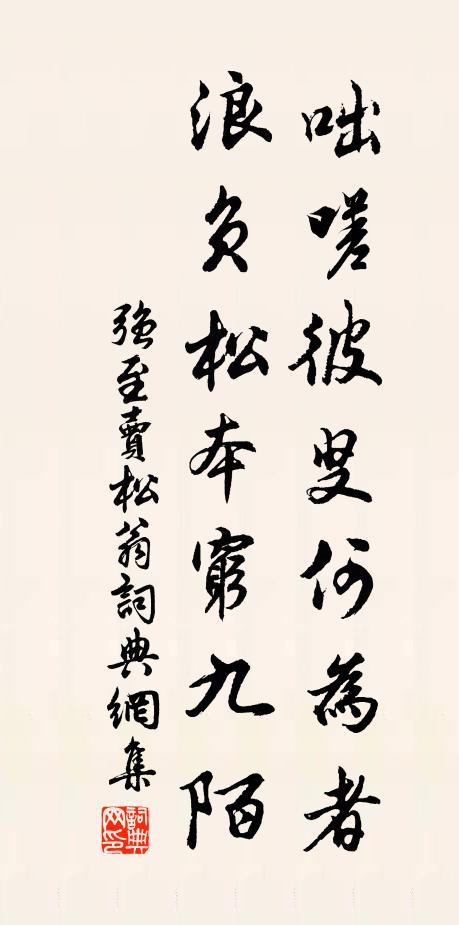 咄嗟彼叟何為者
浪負松本窮九陌
強至賣松翁詞典網集
詞典網印